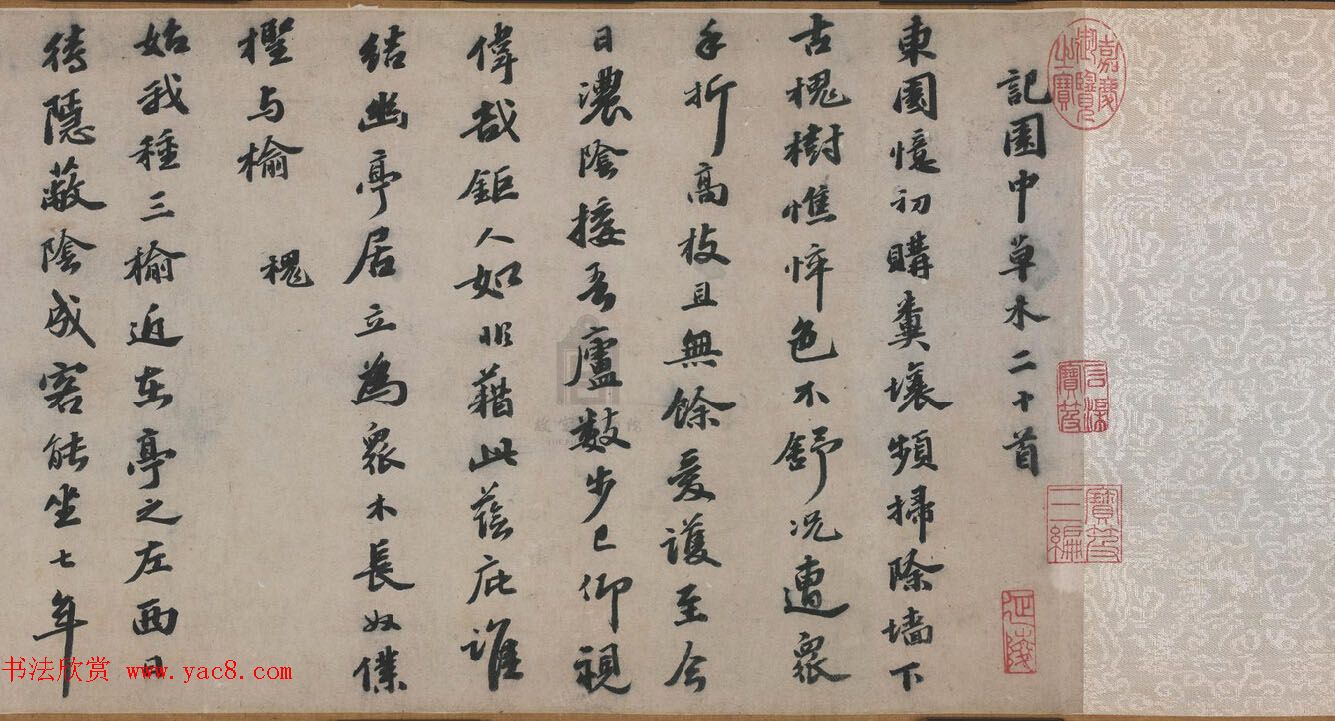 記園中草木二十首
東園憶初購糞壤頻掃除墻下
古槐樹憔悴色不舒況遭眾
手折高枝且無餘愛護至今
日濃陰接吾廬數步已仰視
偉哉鉅人如非藉此蔭庇誰
結幽亭居立為眾木長奴僕
檉与榆 槐
始我種三榆近在亭之左西日
待隱蔽陰成客能坐七年
嘉慶御覽之寶
石渠寶笈
寶笈三編
书法欣赏 www.yac8.com